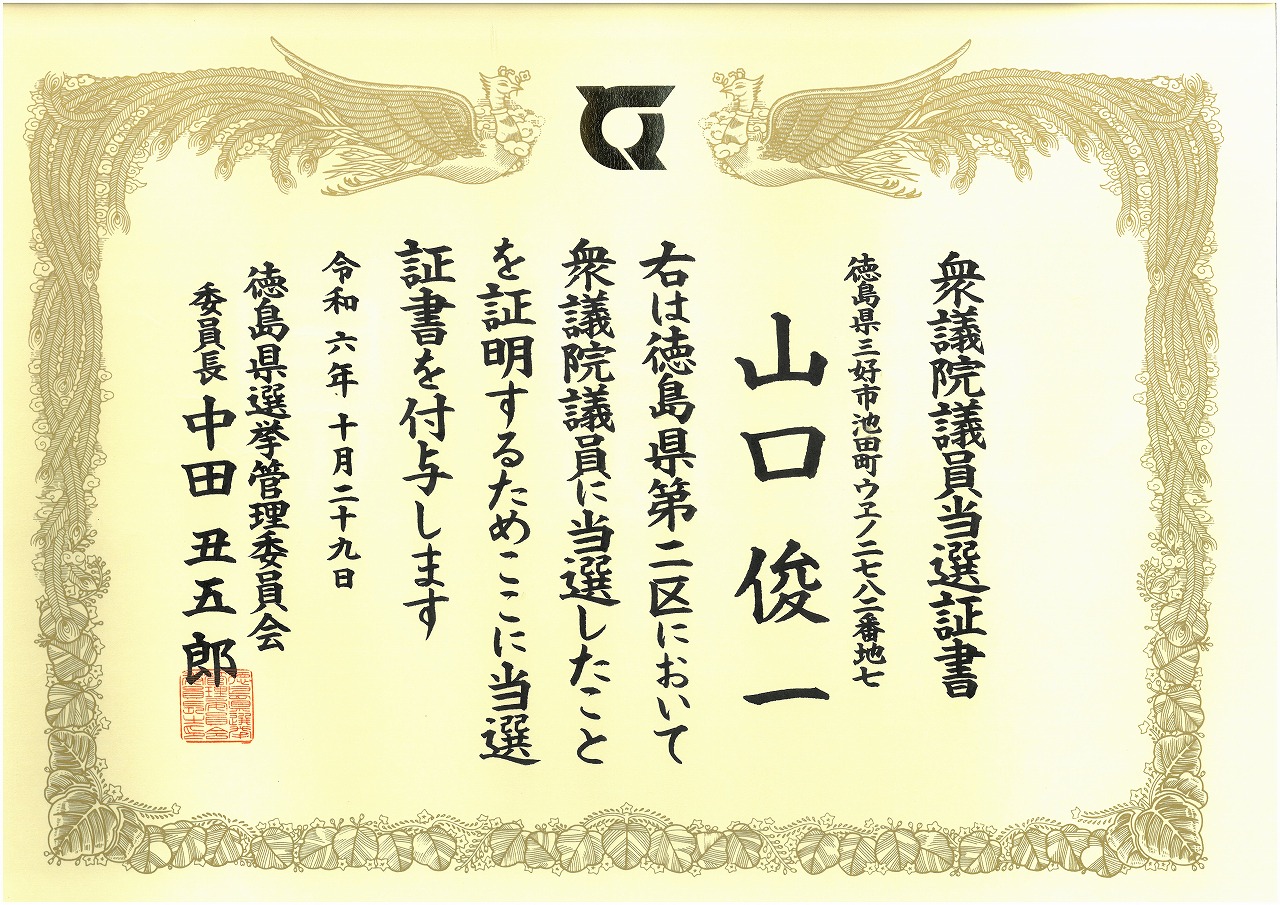 衆議院議員当選証書
徳島県三好市池田町ウヱノ二七八二番地七
山口俊一
右は徳島県第二区において
衆議院議員に当選したこと
を証明するためここに当選
証書を付与します
令和六年十月二十九日
徳島県選挙管理委員会
委員長 中田丑五郎